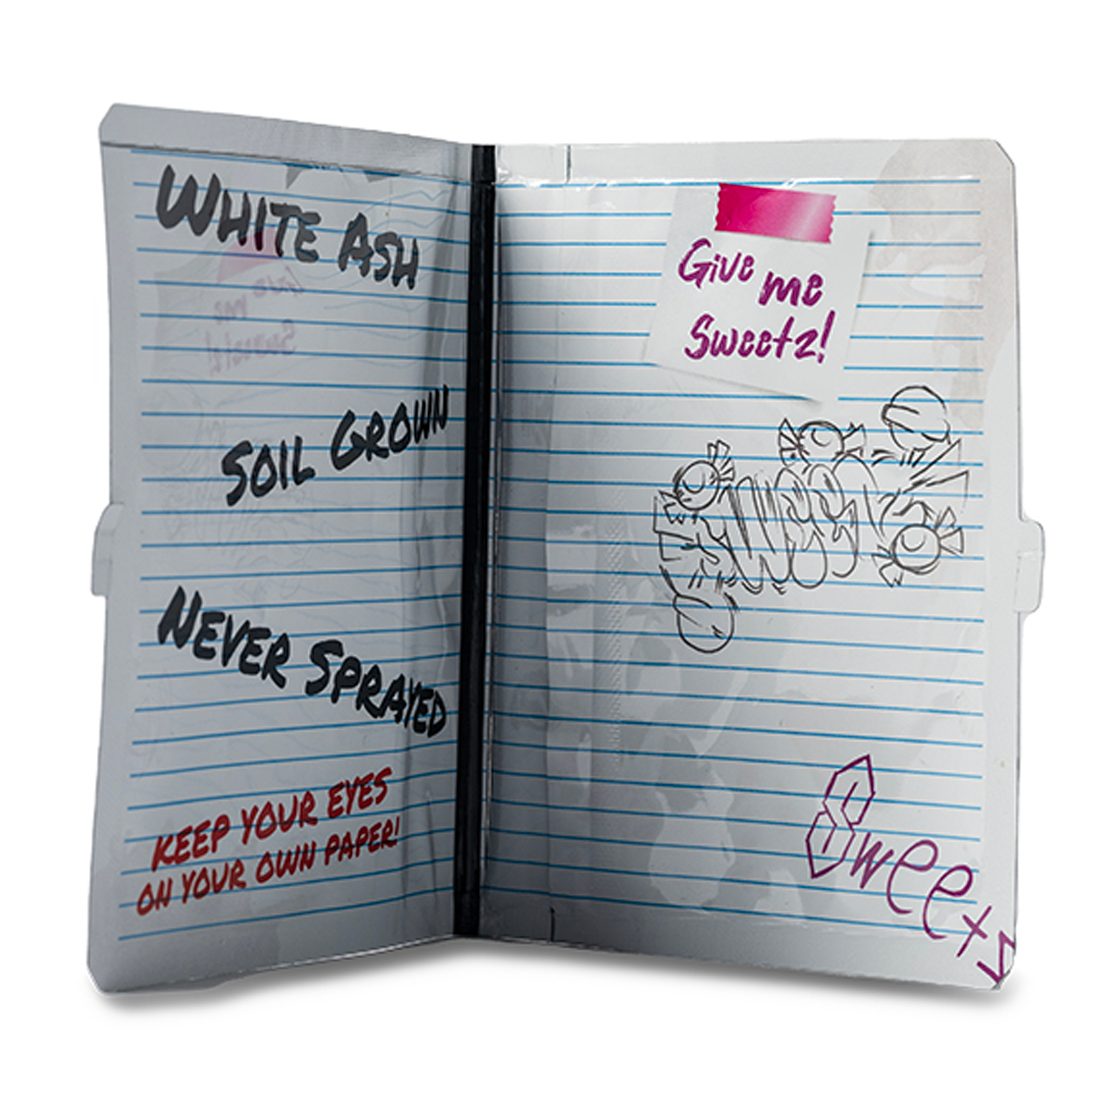 WHITE ASH
SOIL GROWN
NEVER SPRAYED
KEEP YOUR EYES
ON YOUR OWN PAPER!
Give me
Sweetz!
SWEETZ
Sweets